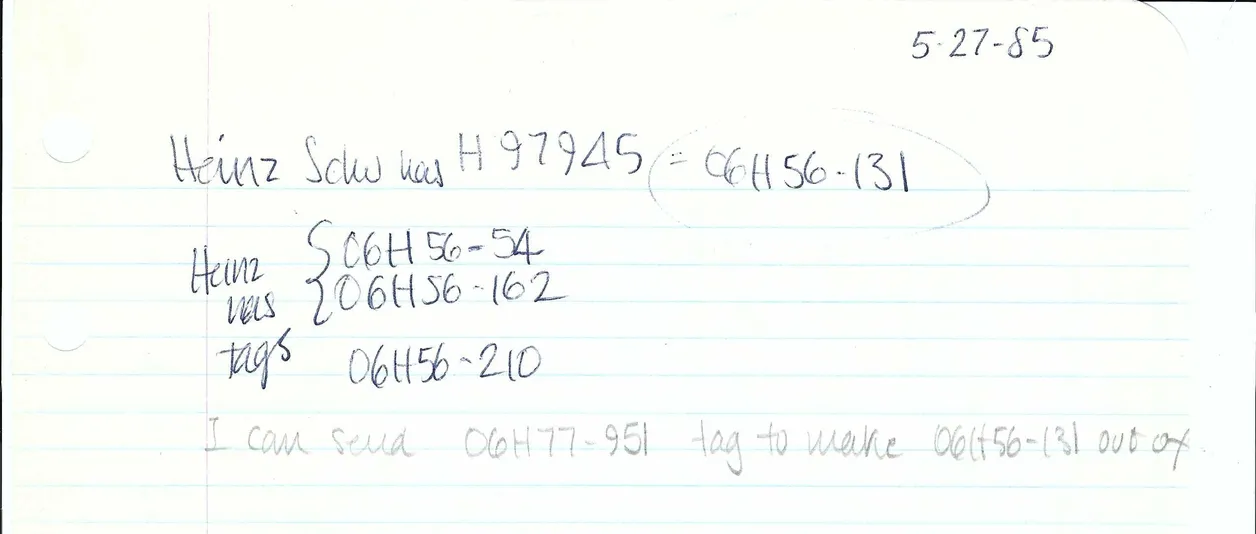 5-27-85
Heinz Schw has H 97945 = 06H56-131
Heinz has tags { 06H56-54
06H56-162
06H56-210
I can send 06H77-951 tag to make 06H56-131 out of